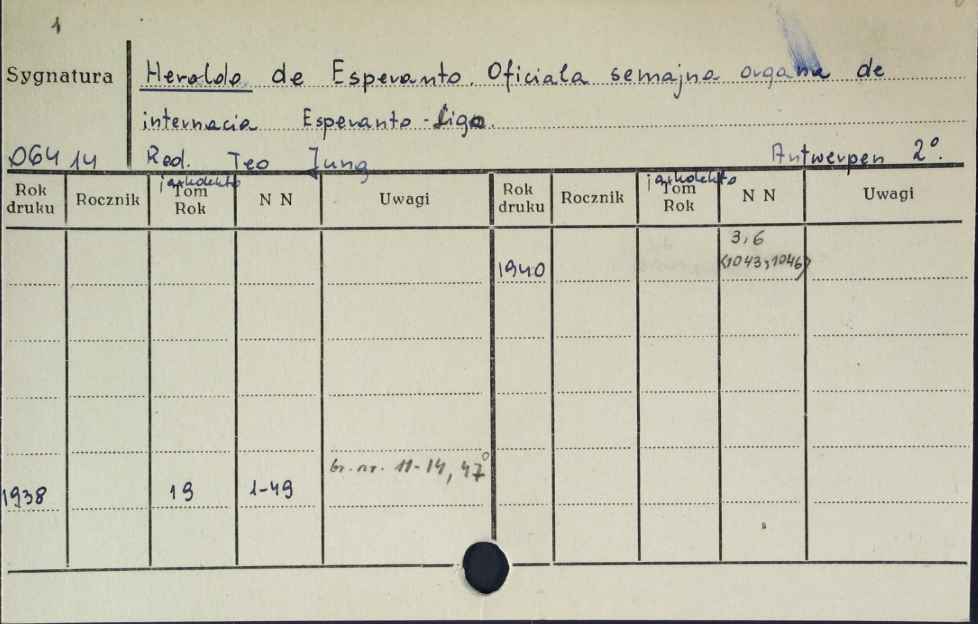 1
Sygnatura
Heroldo de Esperanto. Oficiala semajna organo de
internacia Esperanto-Ligo.
064 14 Red. Teo Jung Antwerpen 2°.
Rok druku Rocznik jarkolekto Tom Rok N N Uwagi Rok druku Rocznik jarkolekto Tom Rok N N Uwagi
3, 6
1940 (1043, 1046)
br. nr. 11-14, 47
1938 19 1-49